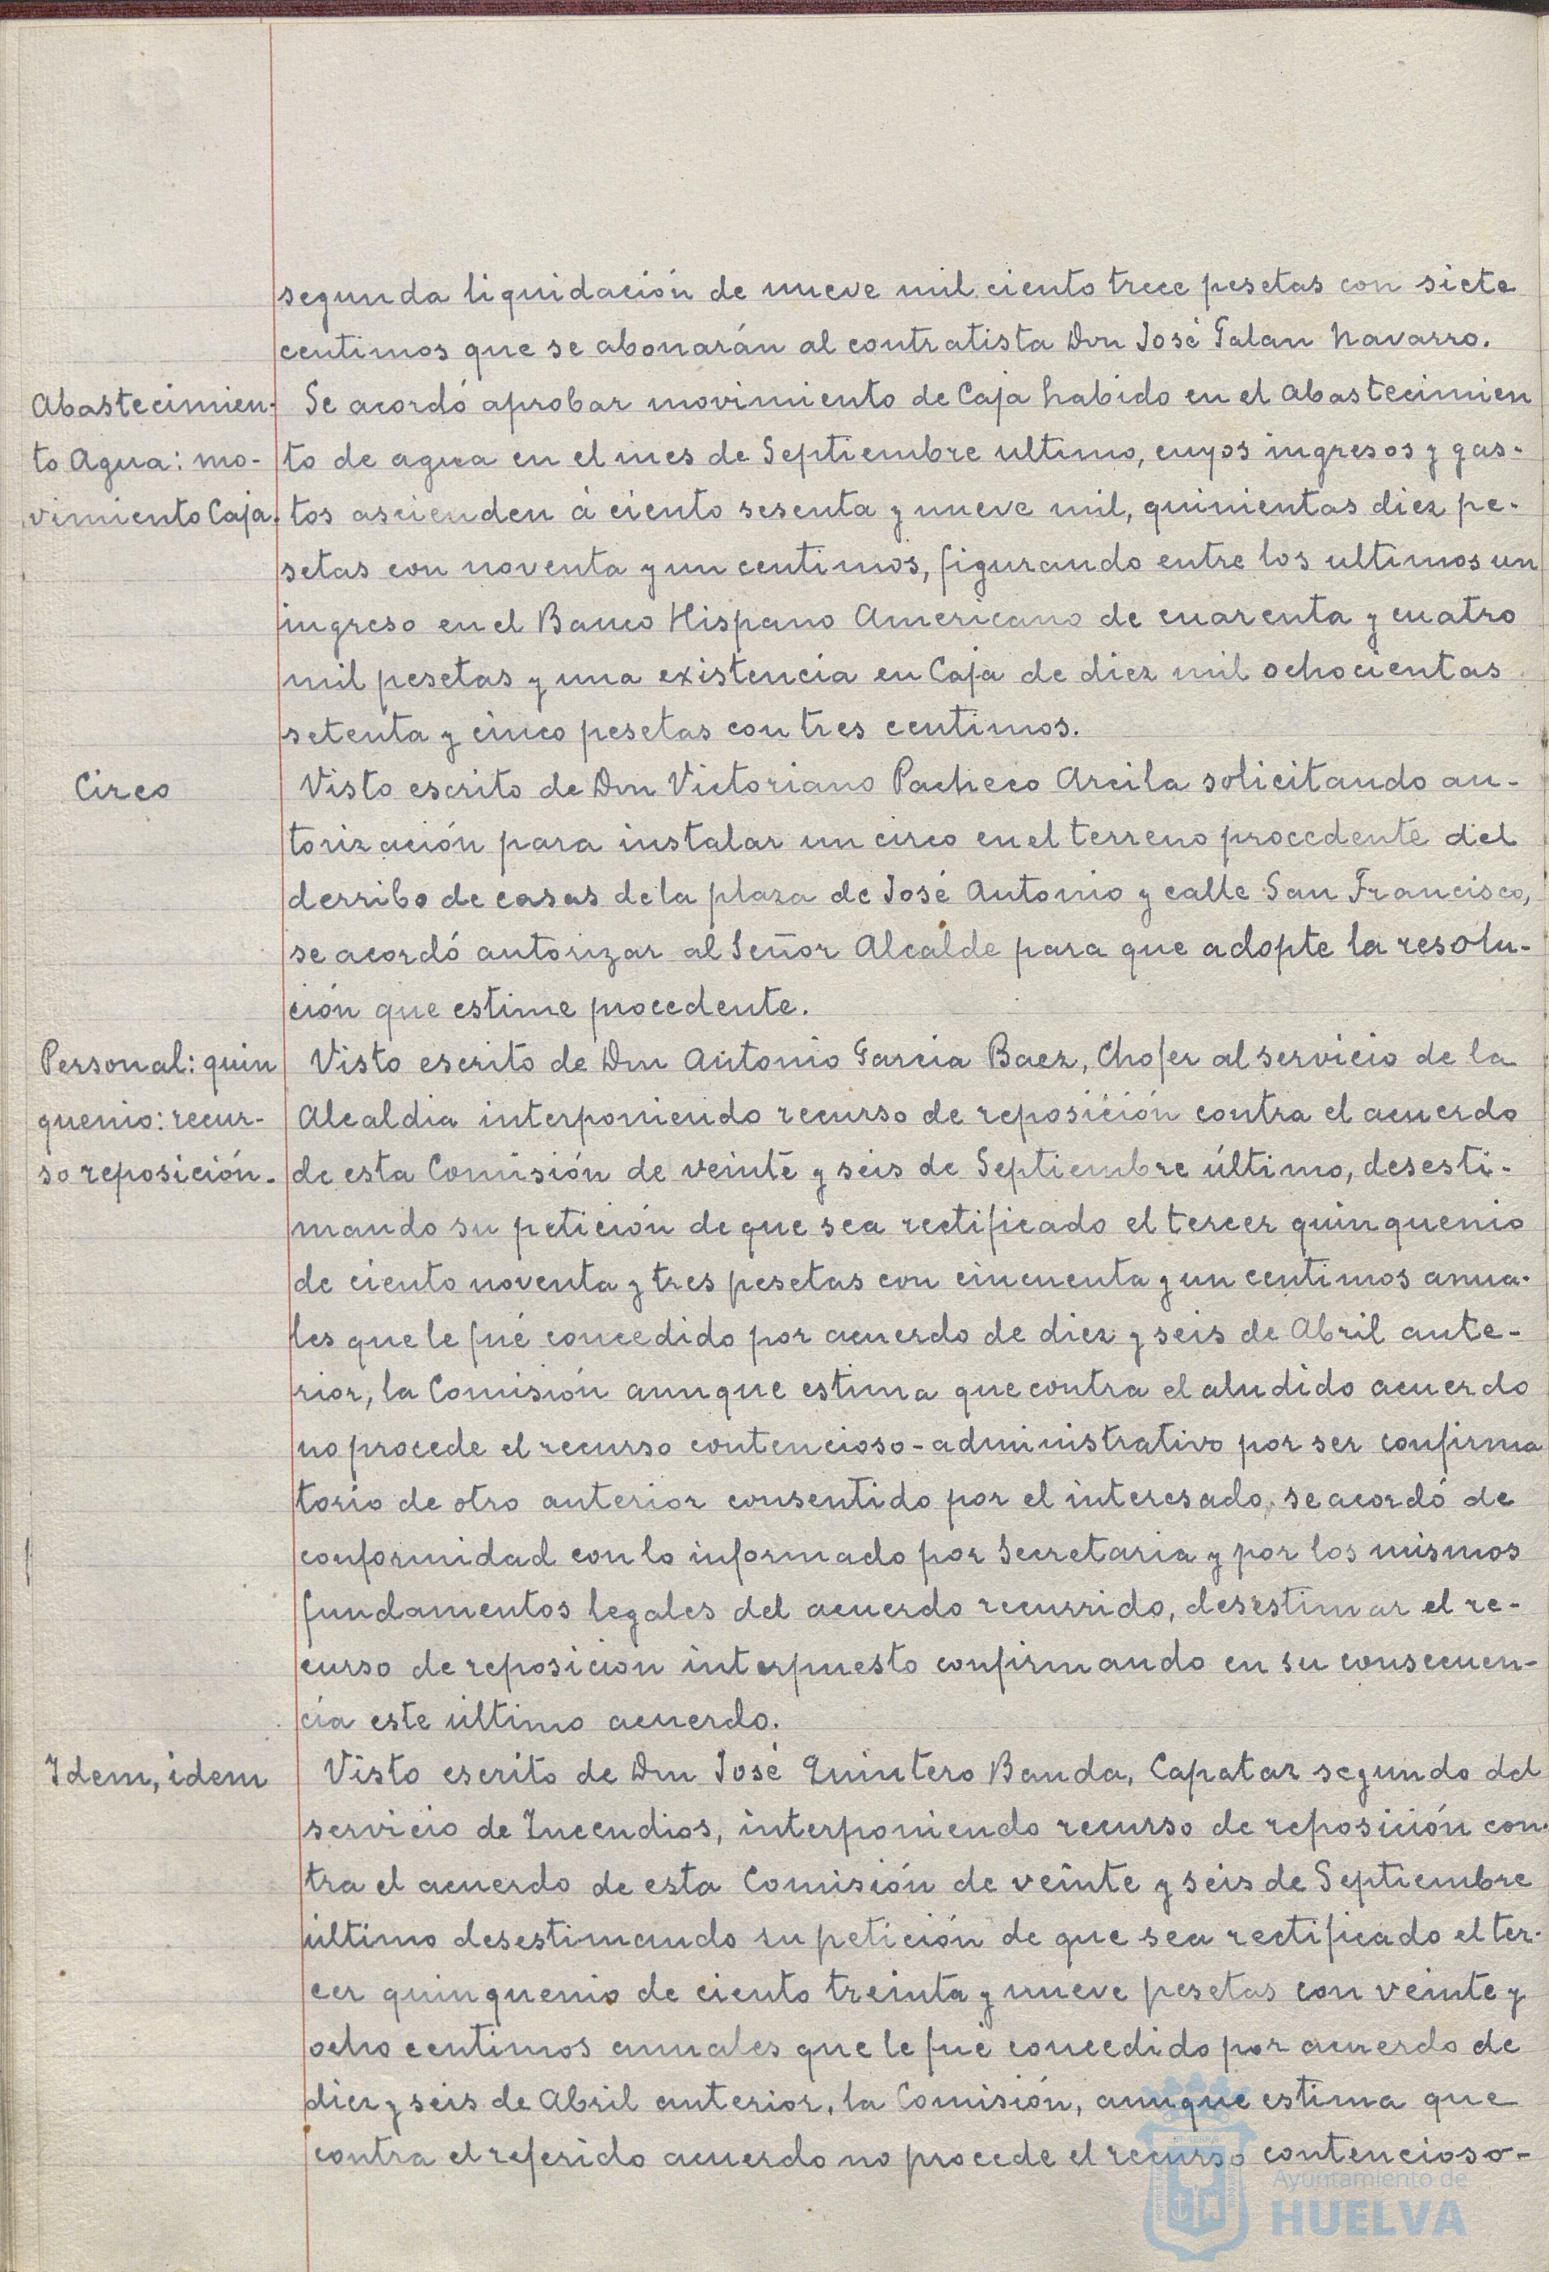 segunda liquidación de nueve mil ciento trece pesetas con siete
centimos que se abonarán al contratista Don José Galan Navarro.
Abastecimien-
to Agua: mo-
vimiento Caja.
Se acordó aprobar movimiento de Caja habido en el Abastecimien
to de agua en el mes de Septiembre ultimo, cuyos ingresos y gas-
tos ascienden á ciento sesenta y nueve mil, quinientas diez pe-
setas con noventa y un centimos, figurando entre los ultimos un
ingreso en el Banco Hispano Americano de cuarenta y cuatro
mil pesetas y una existencia en Caja de diez mil ochocientas
setenta y cinco pesetas con tres centimos.
Circo
Visto escrito de Don Victoriano Pacheco Arcila solicitando au-
torización para instalar un circo en el terreno procedente del
derribo de casas de la plaza de José Antonio y calle San Francisco,
se acordó autorizar al Señor Alcalde para que adopte la resolu-
ción que estime procedente.
Personal: quin
quenio: recur-
so reposición.
Visto escrito de Don Antonio García Baez, Chofer al servicio de la
Alcaldia interponiendo recurso de reposición contra el acuerdo
de esta Comisión de veinte y seis de Septiembre último, desesti-
mando su petición de que sea rectificado el tercer quinquenio
de ciento noventa y tres pesetas con cincuenta y un centimos anua-
les que le fué concedido por acuerdo de diez y seis de Abril ante-
rior, la Comisión aunque estima que contra el aludido acuerdo
no procede el recurso contencioso-administrativo por ser confirma
torio de otro anterior consentido por el interesado, se acordó de
conformidad con lo informado por Secretaria y por los mismos
fundamentos legales del acuerdo recurrido, desestimar el re-
curso de reposicion interpuesto confirmando en su consecuen-
cia este último acuerdo.
Idem, idem
Visto escrito de Don José Quintero Banda, Capataz segundo del
servicio de Incendios, interponiendo recurso de reposición con-
tra el acuerdo de esta Comisión de veinte y seis de Septiembre
último desestimando su petición de que sea rectificado el ter-
cer quinquenio de ciento treinta y nueve pesetas con veinte y
ocho centimos anuales que le fué concedido por acuerdo de
diez y seis de Abril anterior, la Comisión, aunque estima que
contra el referido acuerdo no procede el recurso contencioso-
Ayuntamiento de
HUELVA